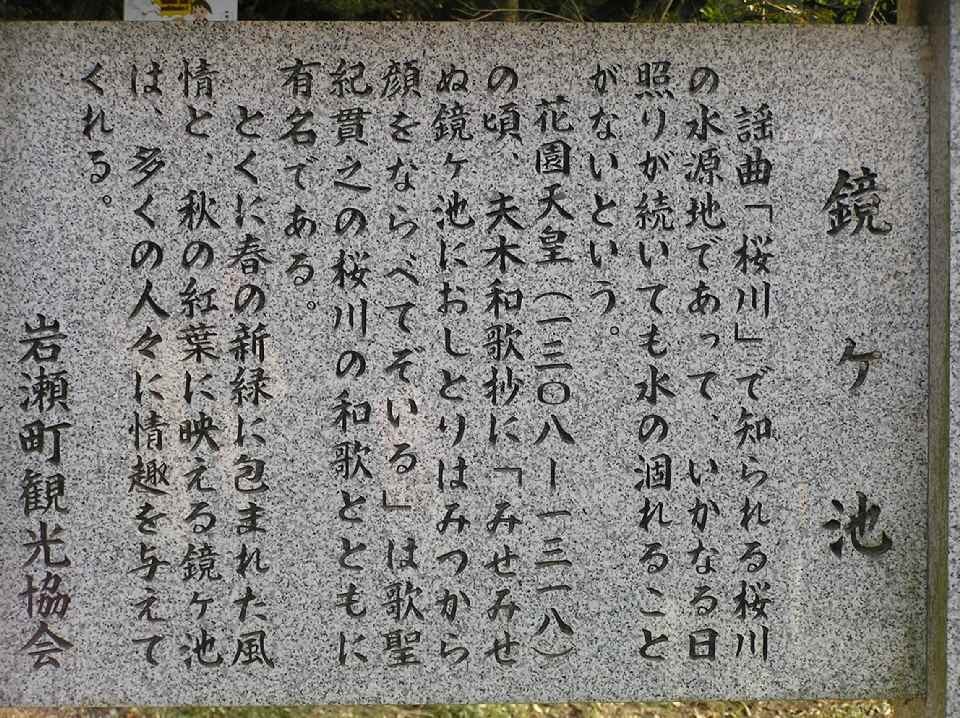 鏡ヶ池
謡曲「桜川」で知られる桜川
の水源地であって、いかなる日
照りが続いても水の涸れること
がないという。
花園天皇（一三〇八ー一三一八）
の頃、夫木和歌抄に「みせみせ
ぬ鏡ヶ池におしとりはみつから
顔をならべてぞいる」は歌聖
紀貫之の桜川の和歌とともに
有名である。
とくに春の新緑に包まれた風
情と、秋の紅葉に映える鏡ヶ池
は、多くの人々に情趣を与えて
くれる。
岩瀬町観光協会